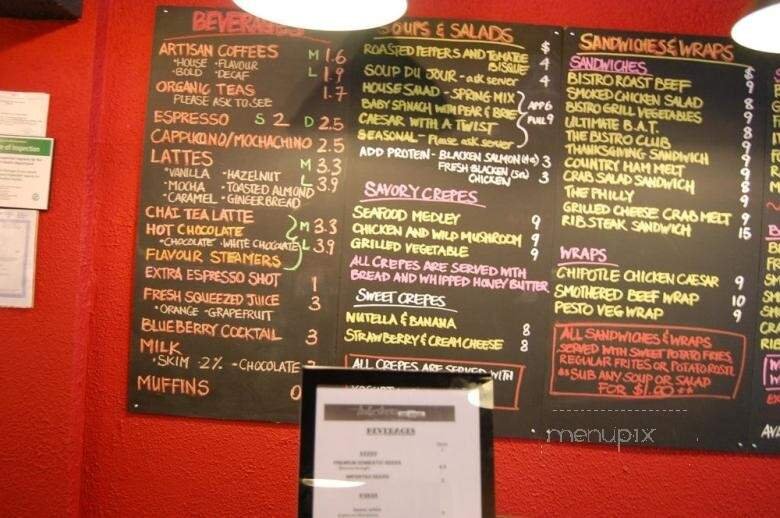 BEVERAGES
ARTISAN COFFEES M 1.6
•HOUSE •FLAVOUR
•BOLD •DECAF L 1.9
ORGANIC TEAS 1.7
PLEASE ASK TO SEE
ESPRESSO S 2 D 2.5
CAPPUCCINO/MOCHACCINO 2.5
LATTES M 3.3
•VANILLA •HAZELNUT L 3.9
•MOCHA •TOASTED ALMOND
•CARAMEL •GINGERBREAD
CHAI TEA LATTE
HOT CHOCOLATE M 3.3
•CHOCOLATE •WHITE CHOCOLATE L 3.9
FLAVOUR STEAMERS
EXTRA ESPRESSO SHOT 1
FRESH SQUEEZED JUICE 3
•ORANGE •GRAPEFRUIT
BLUEBERRY COCKTAIL 3
MILK
•SKIM •2% •CHOCOLATE
MUFFINS
SOUPS & SALADS
$
ROASTED PEPPERS AND TOMATOE BISQUE 4
SOUP DU JOUR - ask server 4
HOUSE SALAD - SPRING MIX
BABY SPINACH WITH PEAR & BRIE APP 6
CAESAR WITH A TWIST FULL 9
SEASONAL - Please ask server
ADD PROTEIN - BLACKEN SALMON 3
FRESH BLACKEN CHICKEN 3
SAVORY CREPES
SEAFOOD MEDLEY 9
CHICKEN AND WILD MUSHROOM 9
GRILLED VEGETABLE 9
ALL CREPES ARE SERVED WITH
BREAD AND WHIPPED HONEY BUTTER
SWEET CREPES
NUTELLA & BANANA 8
STRAWBERRY & CREAM CHEESE 8
ALL CREPES ARE SERVED WITH
SANDWICHES & WRAPS
SANDWICHES $
BISTRO ROAST BEEF 9
SMOKED CHICKEN SALAD 8
BISTRO GRILL VEGETABLES 9
ULTIMATE B.A.T. 8
THE BISTRO CLUB 9
THANKSGIVING SANDWICH 9
COUNTRY HAM MELT 9
CRAB SALAD SANDWICH 8
THE PHILLY 9
GRILLED CHEESE CRAB MELT 9
RIB STEAK SANDWICH 15
WRAPS
CHIPOTLE CHICKEN CAESAR 9
SMOTHERED BEEF WRAP 10
PESTO VEG WRAP 9
ALL SANDWICHES & WRAPS
SERVED WITH SWEET POTATO FRIES,
REGULAR FRITES OR POTATO ROSTI
**SUB ANY SOUP OR SALAD
FOR $1.00**
menupix
BEVERAGES